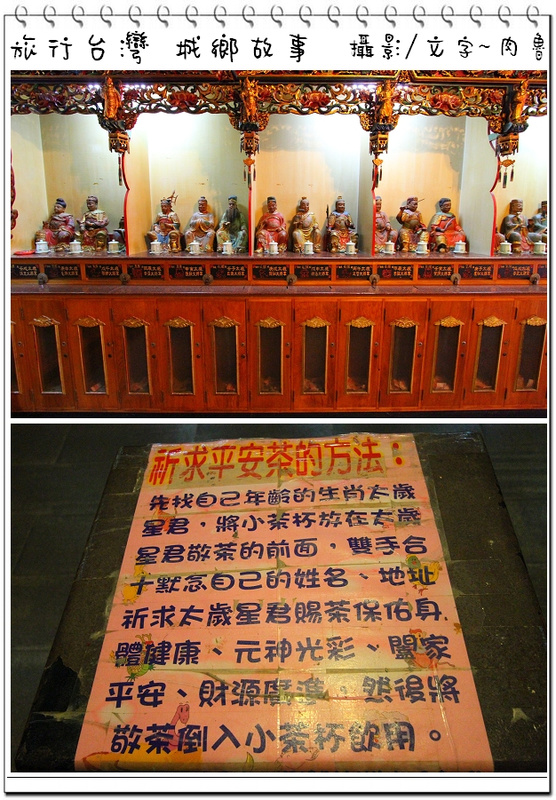 旅行台灣 城鄉故事 攝影/文字~肉魯
祈求平安茶的方法：
先找自己年齡的生肖太歲
星君，將小茶杯放在太歲
星君敬茶的前面，雙手合
十默念自己的姓名、地址
祈求太歲星君賜茶保佑身
體健康、元神光彩、闔家
平安、財源廣進，然後將
敬茶倒入小茶杯飲用。